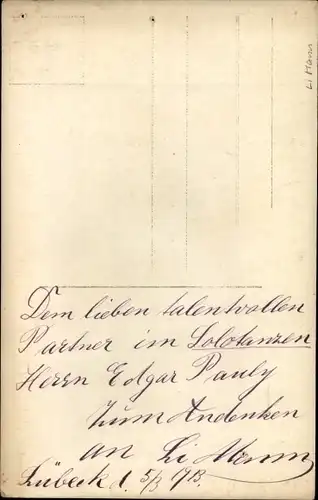 Li Mann
Dem lieben talentvollen
Partner im Solotanzen
Herrn Edgar Pauly
Zum Andenken
an Li Mann
Lübeck d. 5/3 1913.